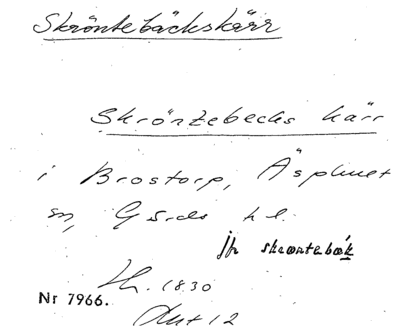 Skröntebäckskärr
Skröntebecks kärr
i Brostorp, Äsphult
sn, Gärds hd.
jfr skrœntebœk
1830
Nr 7966.
Akt 12